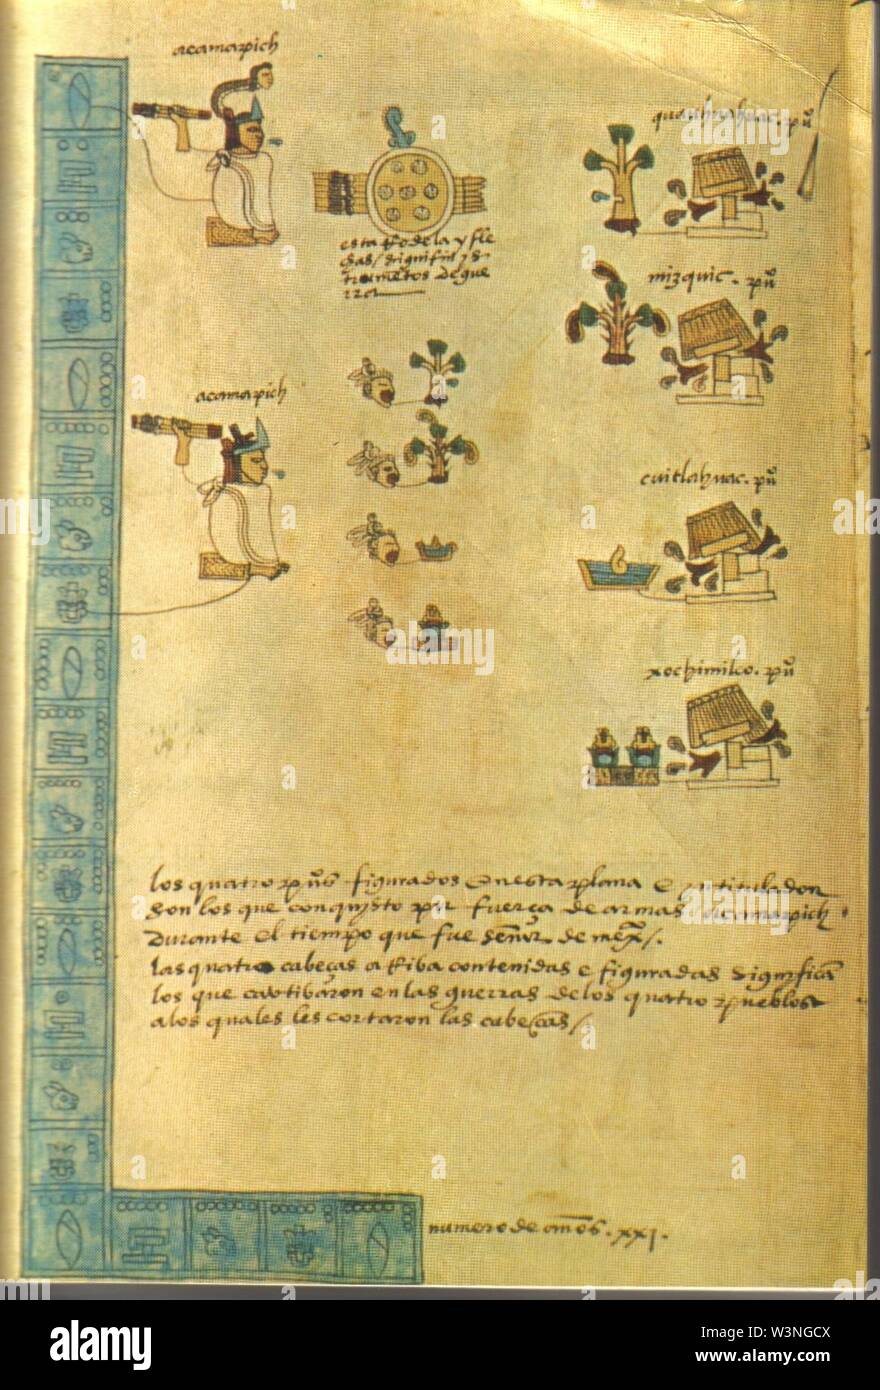 acamapich
quauhnahuac. pu°
esta Rodela y fle
chas / significa ys
trumētos de gue
rra
mizquic. pu°
acamapich
cuitlahuac. pu°
xochimilco. pu°
los quatro pu°s figurados en esta plana e yntitulados
son los que conquisto por fuerça de armas / acamapich
durante el tiempo que fue señor de mexco /.
las quatro cabeças a Riba contenidas e figuradas significā
los que cautibaron en las guerras de los quatro pueblos
a los quales les cortaron las cabeças /
numero de años. xxj.
a alamy stock photo
Image ID: W3NGCX
www.alamy.com